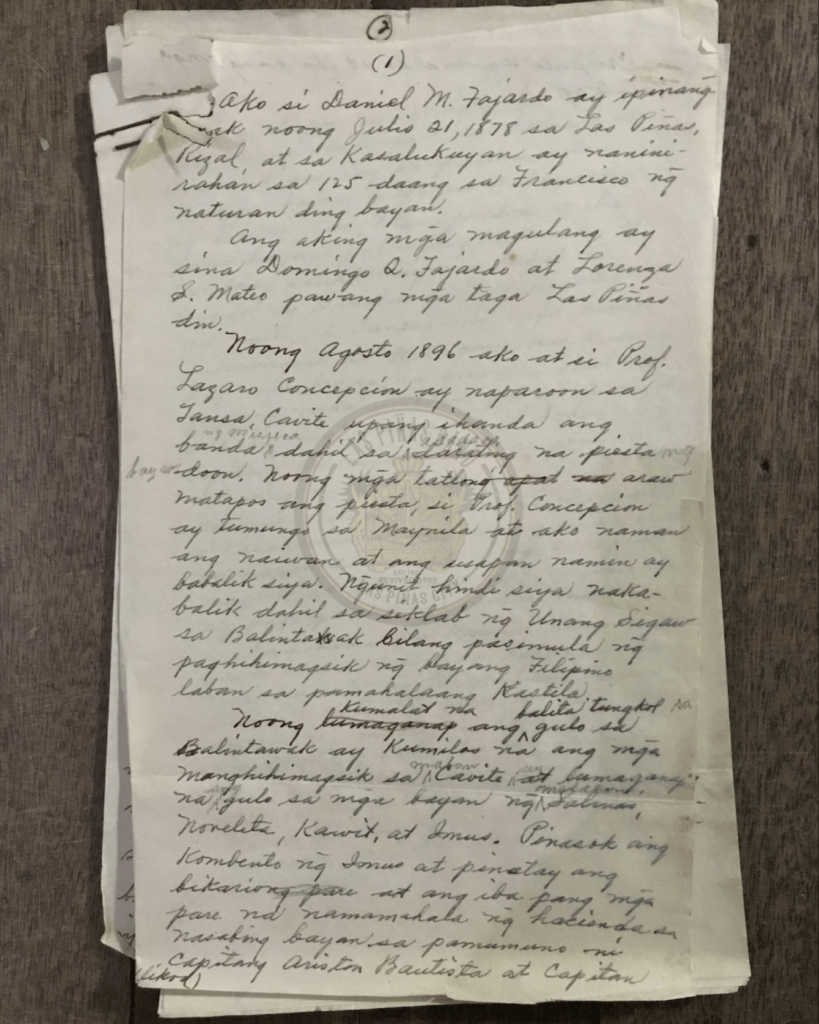 (2)
(1)
Ako si Daniel M. Fajardo ay ipinang
ak noong Julio 21, 1878 sa Las Piñas,
Rizal, at sa Kasalukuyan ay nanini-
rahan sa 125 daang Sa Francisco ng
naturan ding bayan.
Ang aking mga magulang ay
sina Domingo Q. Fajardo at Lorenza
S. Mateo pawang mga taga Las Piñas
din.
Noong Agosto 1896 ako at si Prof.
Lazaro Concepcion ay naparoon sa
Tansa, Cavite upang ihanda ang
ng musica
banda dahil sa darating na piesta ng
bayan doon. Noong mga tatlong apat na araw
matapos ang piesta, si Prof. Concepcion
ay tumungo sa Maynila at ako naman
ang naiwan at ang usapan namin ay
babalik siya. Ngunit hindi siya naka-
balik dahil sa siklab ng Unang Sigaw
sa Balintawak bilang pasimula ng
paghihimagsik ng bayang Filipino
laban sa pamahalaang Kastila.
Kumalat na balita tungkol sa
Noong lumaganap ang gulo sa
Balintawak ay Kumilos na ang mga
manghihimagsik sa Cavite at lumaganap
na ang gulo sa mga bayan ng Salinas,
Noveleta, Kawit, at Imus. Pinasok ang
Kombento ng Imus at pinatay ang
bikariong pare at ang iba pang mga
pare na namamahala ng hacienda sa
nasabing bayan sa pamumuno ni
Capitang Ariston Bautista at Capitan
(likod)
LAS PIÑAS CITY